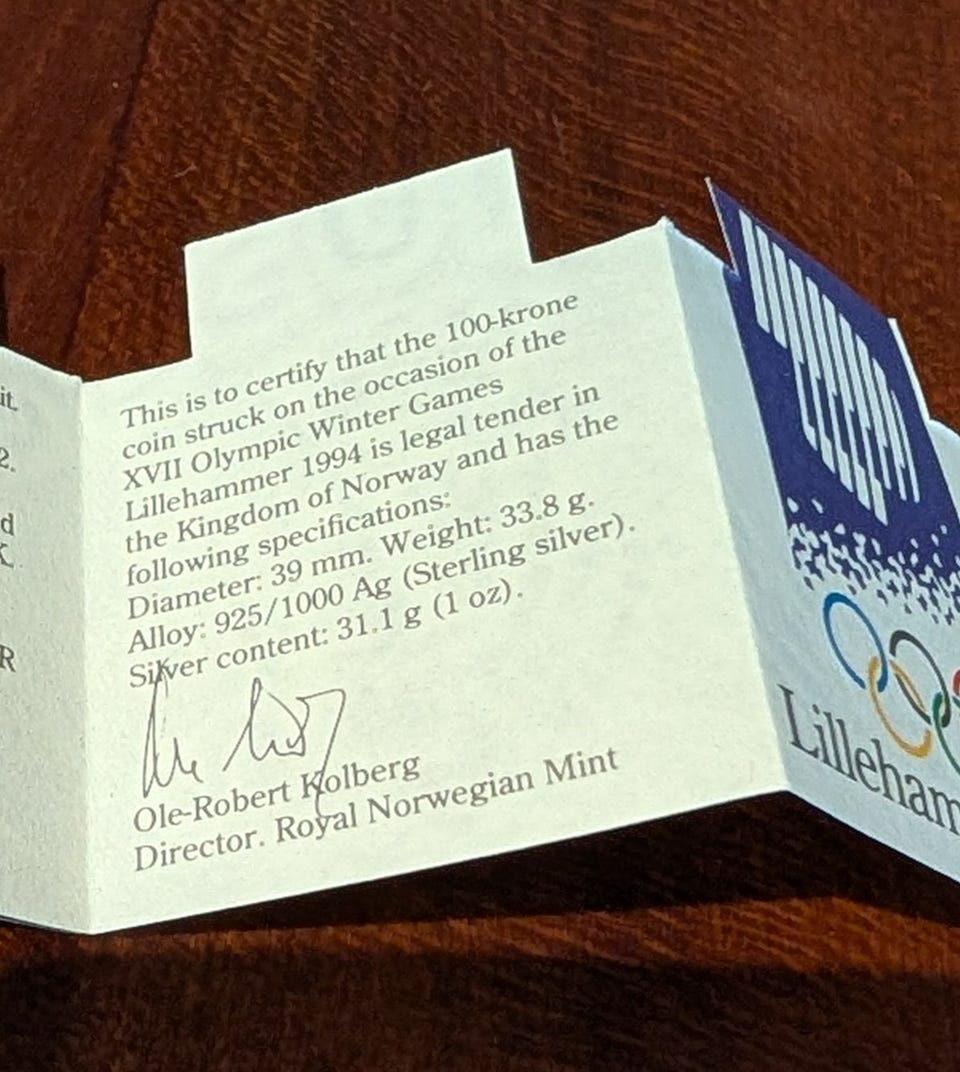 it.
2.
d
R
This is to certify that the 100-krone
coin struck on the occasion of the
XVII Olympic Winter Games
Lillehammer 1994 is legal tender in
the Kingdom of Norway and has the
following specifications:
Diameter: 39 mm. Weight: 33.8 g.
Alloy: 925/1000 Ag (Sterling silver).
Silver content: 31.1 g (1 oz).
Ole-Robert Kolberg
Director. Royal Norwegian Mint
Lilleham